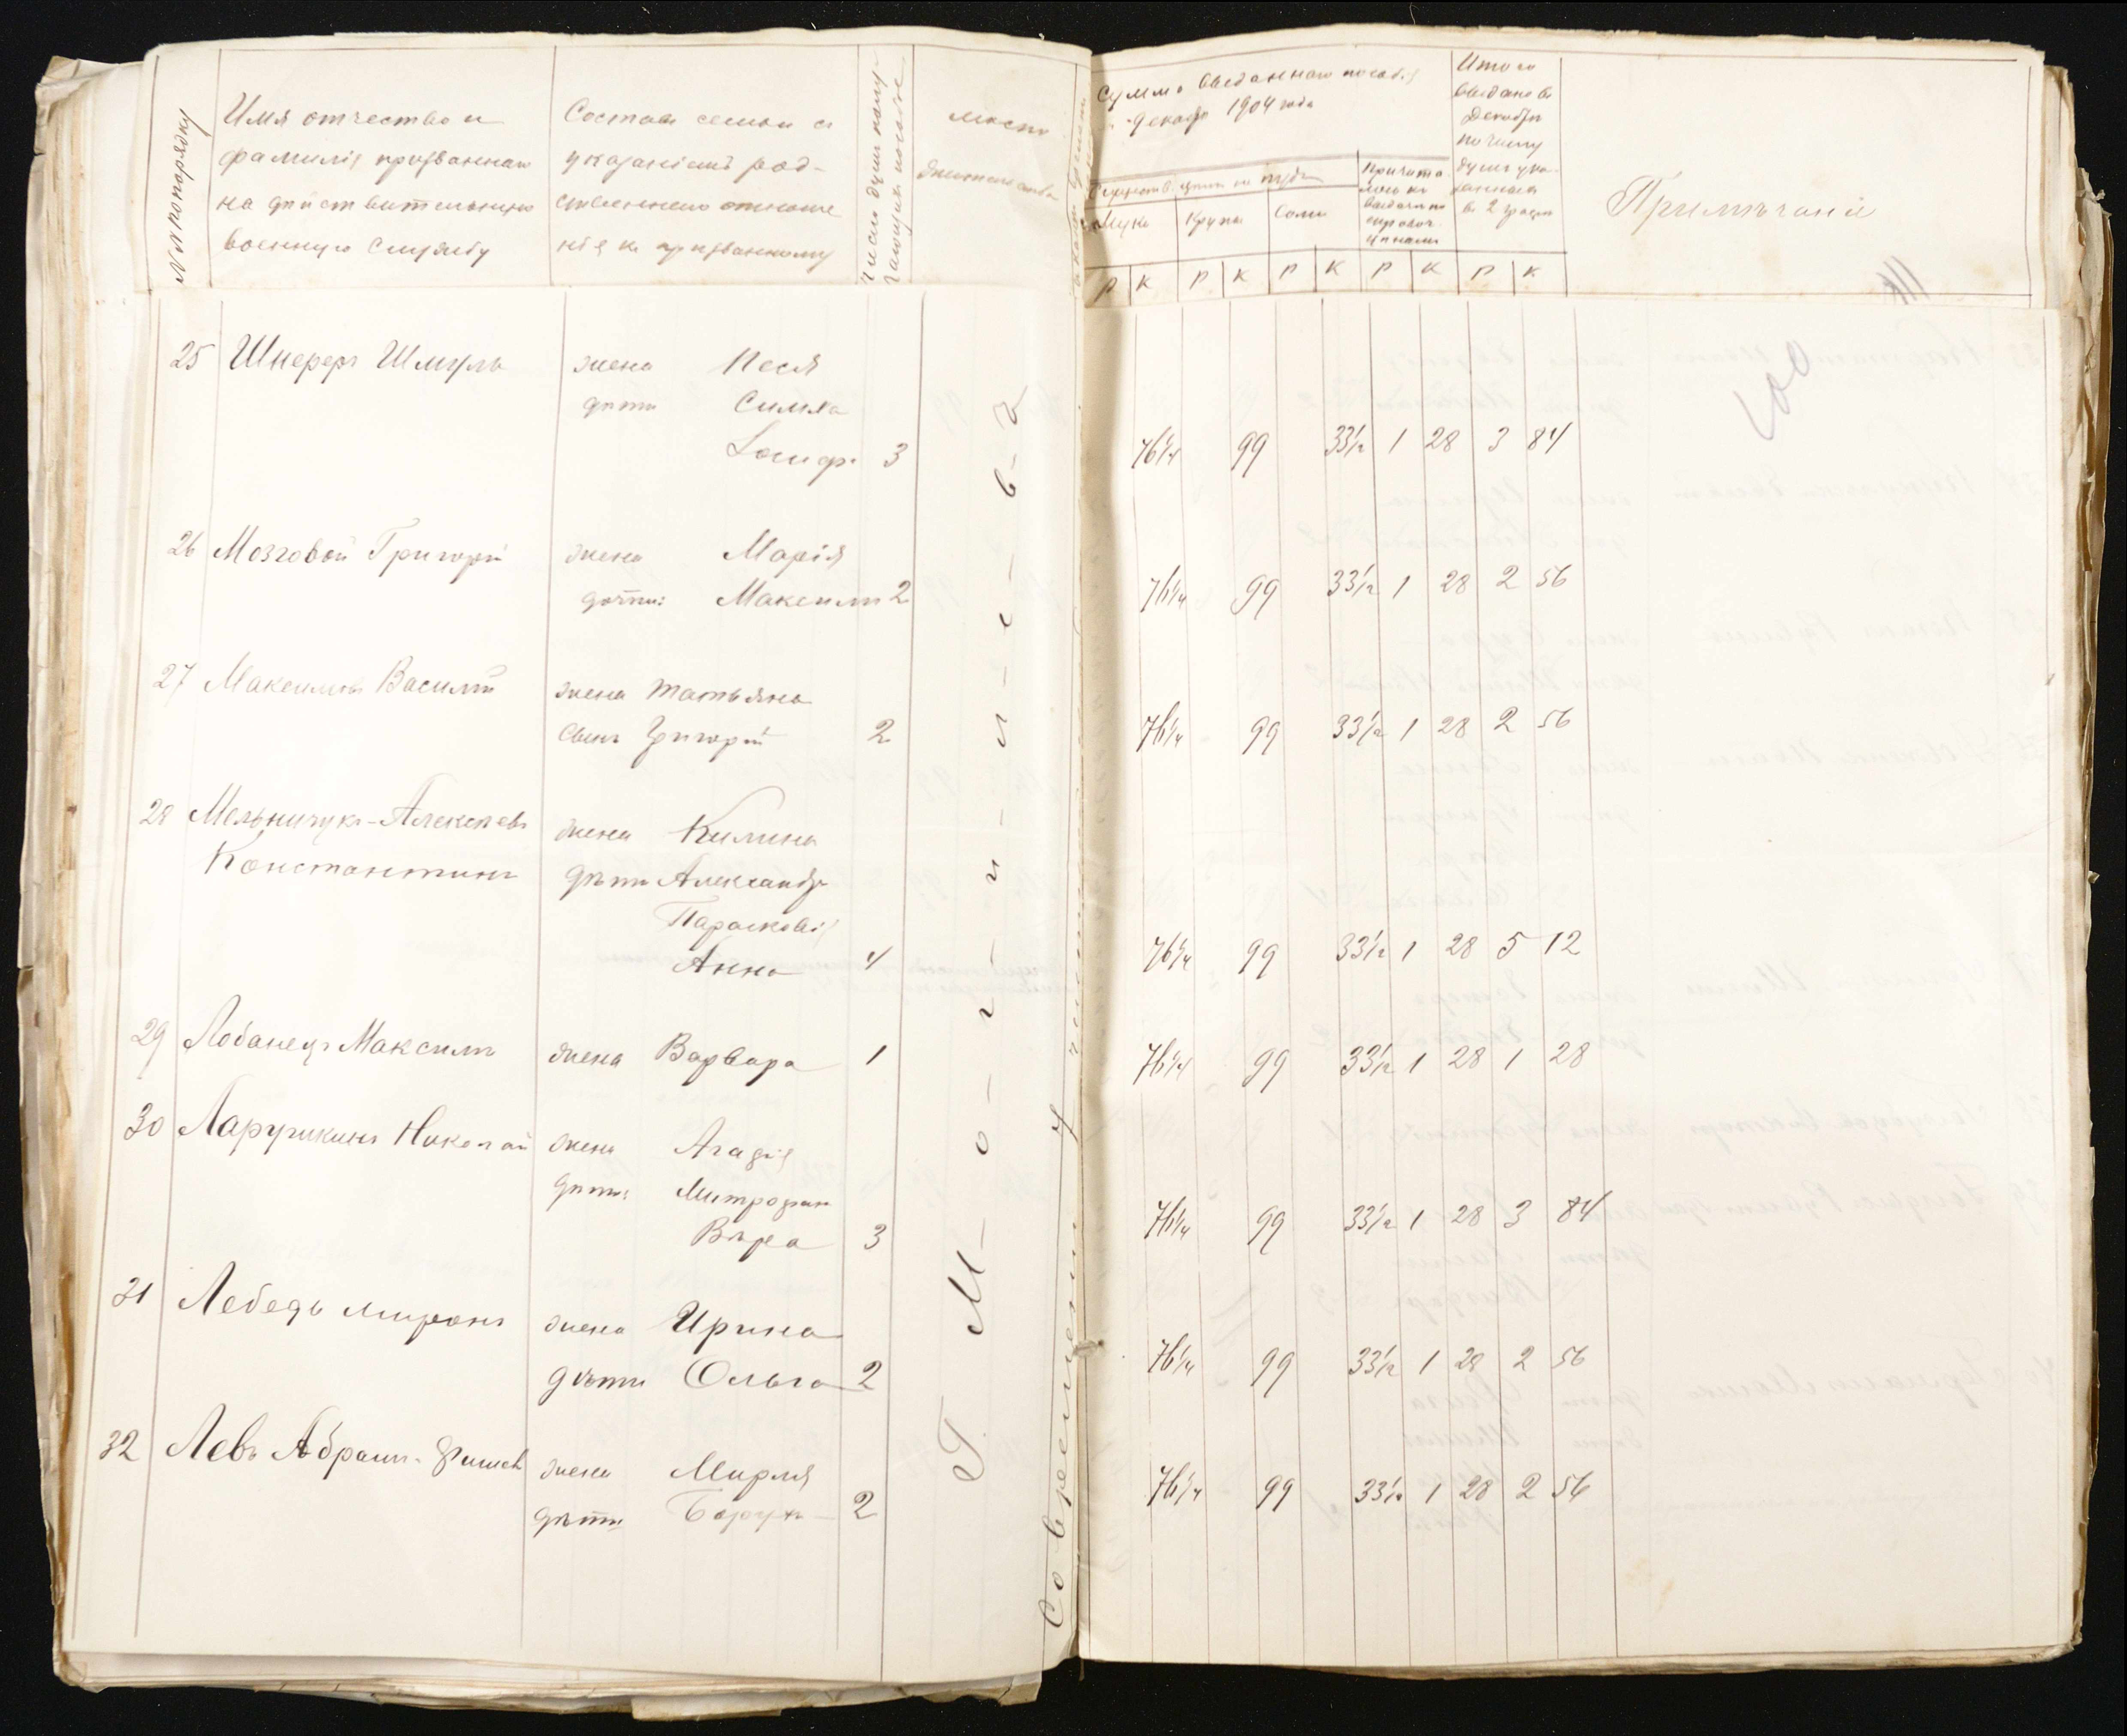 №№ по порядку
Имя отчество и
фамилія призваннаго
на дѣйствительную
военную службу
Составъ семьи съ
указаніемъ род-
ственнаго отноше
нія къ призванному
Число душъ полу-
чающихъ пособіе
Мѣсто
жительства
Сумма выданнаго пособія
декабрь 1904 года
Мука
Крупа
Соль
Причита
лось къ
выдачѣ по
справоч.
цѣнамъ
Итого
выдано въ
Декабрѣ
по числу
душъ ука-
занныхъ
въ 2 графѣ
Примѣчаніе
Р К Р К Р К Р К Р К
100
25 Шнереръ Шмуль жена Песя
дѣти Симха
Іосифъ 3 76¼ 99 33½ 1 28 3 84
26 Мозговой Григорій жена Марія
дѣти: Максимъ 2 76¼ 99 33½ 1 28 2 56
27 Максимовъ Василій жена Татьяна
сынъ Григорій 2 76¼ 99 33½ 1 28 2 56
28 Мельничукъ-Алексѣевъ жена Килина
Константинъ дѣти Александръ
Параскевія
Анна 4 76¼ 99 33½ 1 28 5 12
29 Лобанецъ Максимъ жена Варвара 1 76¼ 99 33½ 1 28 1 28
30 Ларушкинъ Николай жена Агафія
дѣти: Митрофанъ
Вѣра 3 76¼ 99 33½ 1 28 3 84
31 Лебедь Миронъ жена Ирина
дѣти Ольга 2 76¼ 99 33½ 1 28 2 56
32 Левъ Абрамъ-Фишель жена Мирля
дѣти Борухъ 2 76¼ 99 33½ 1 28 2 56
Г. М-о-г-и-л-е-в-ъ
Со времени